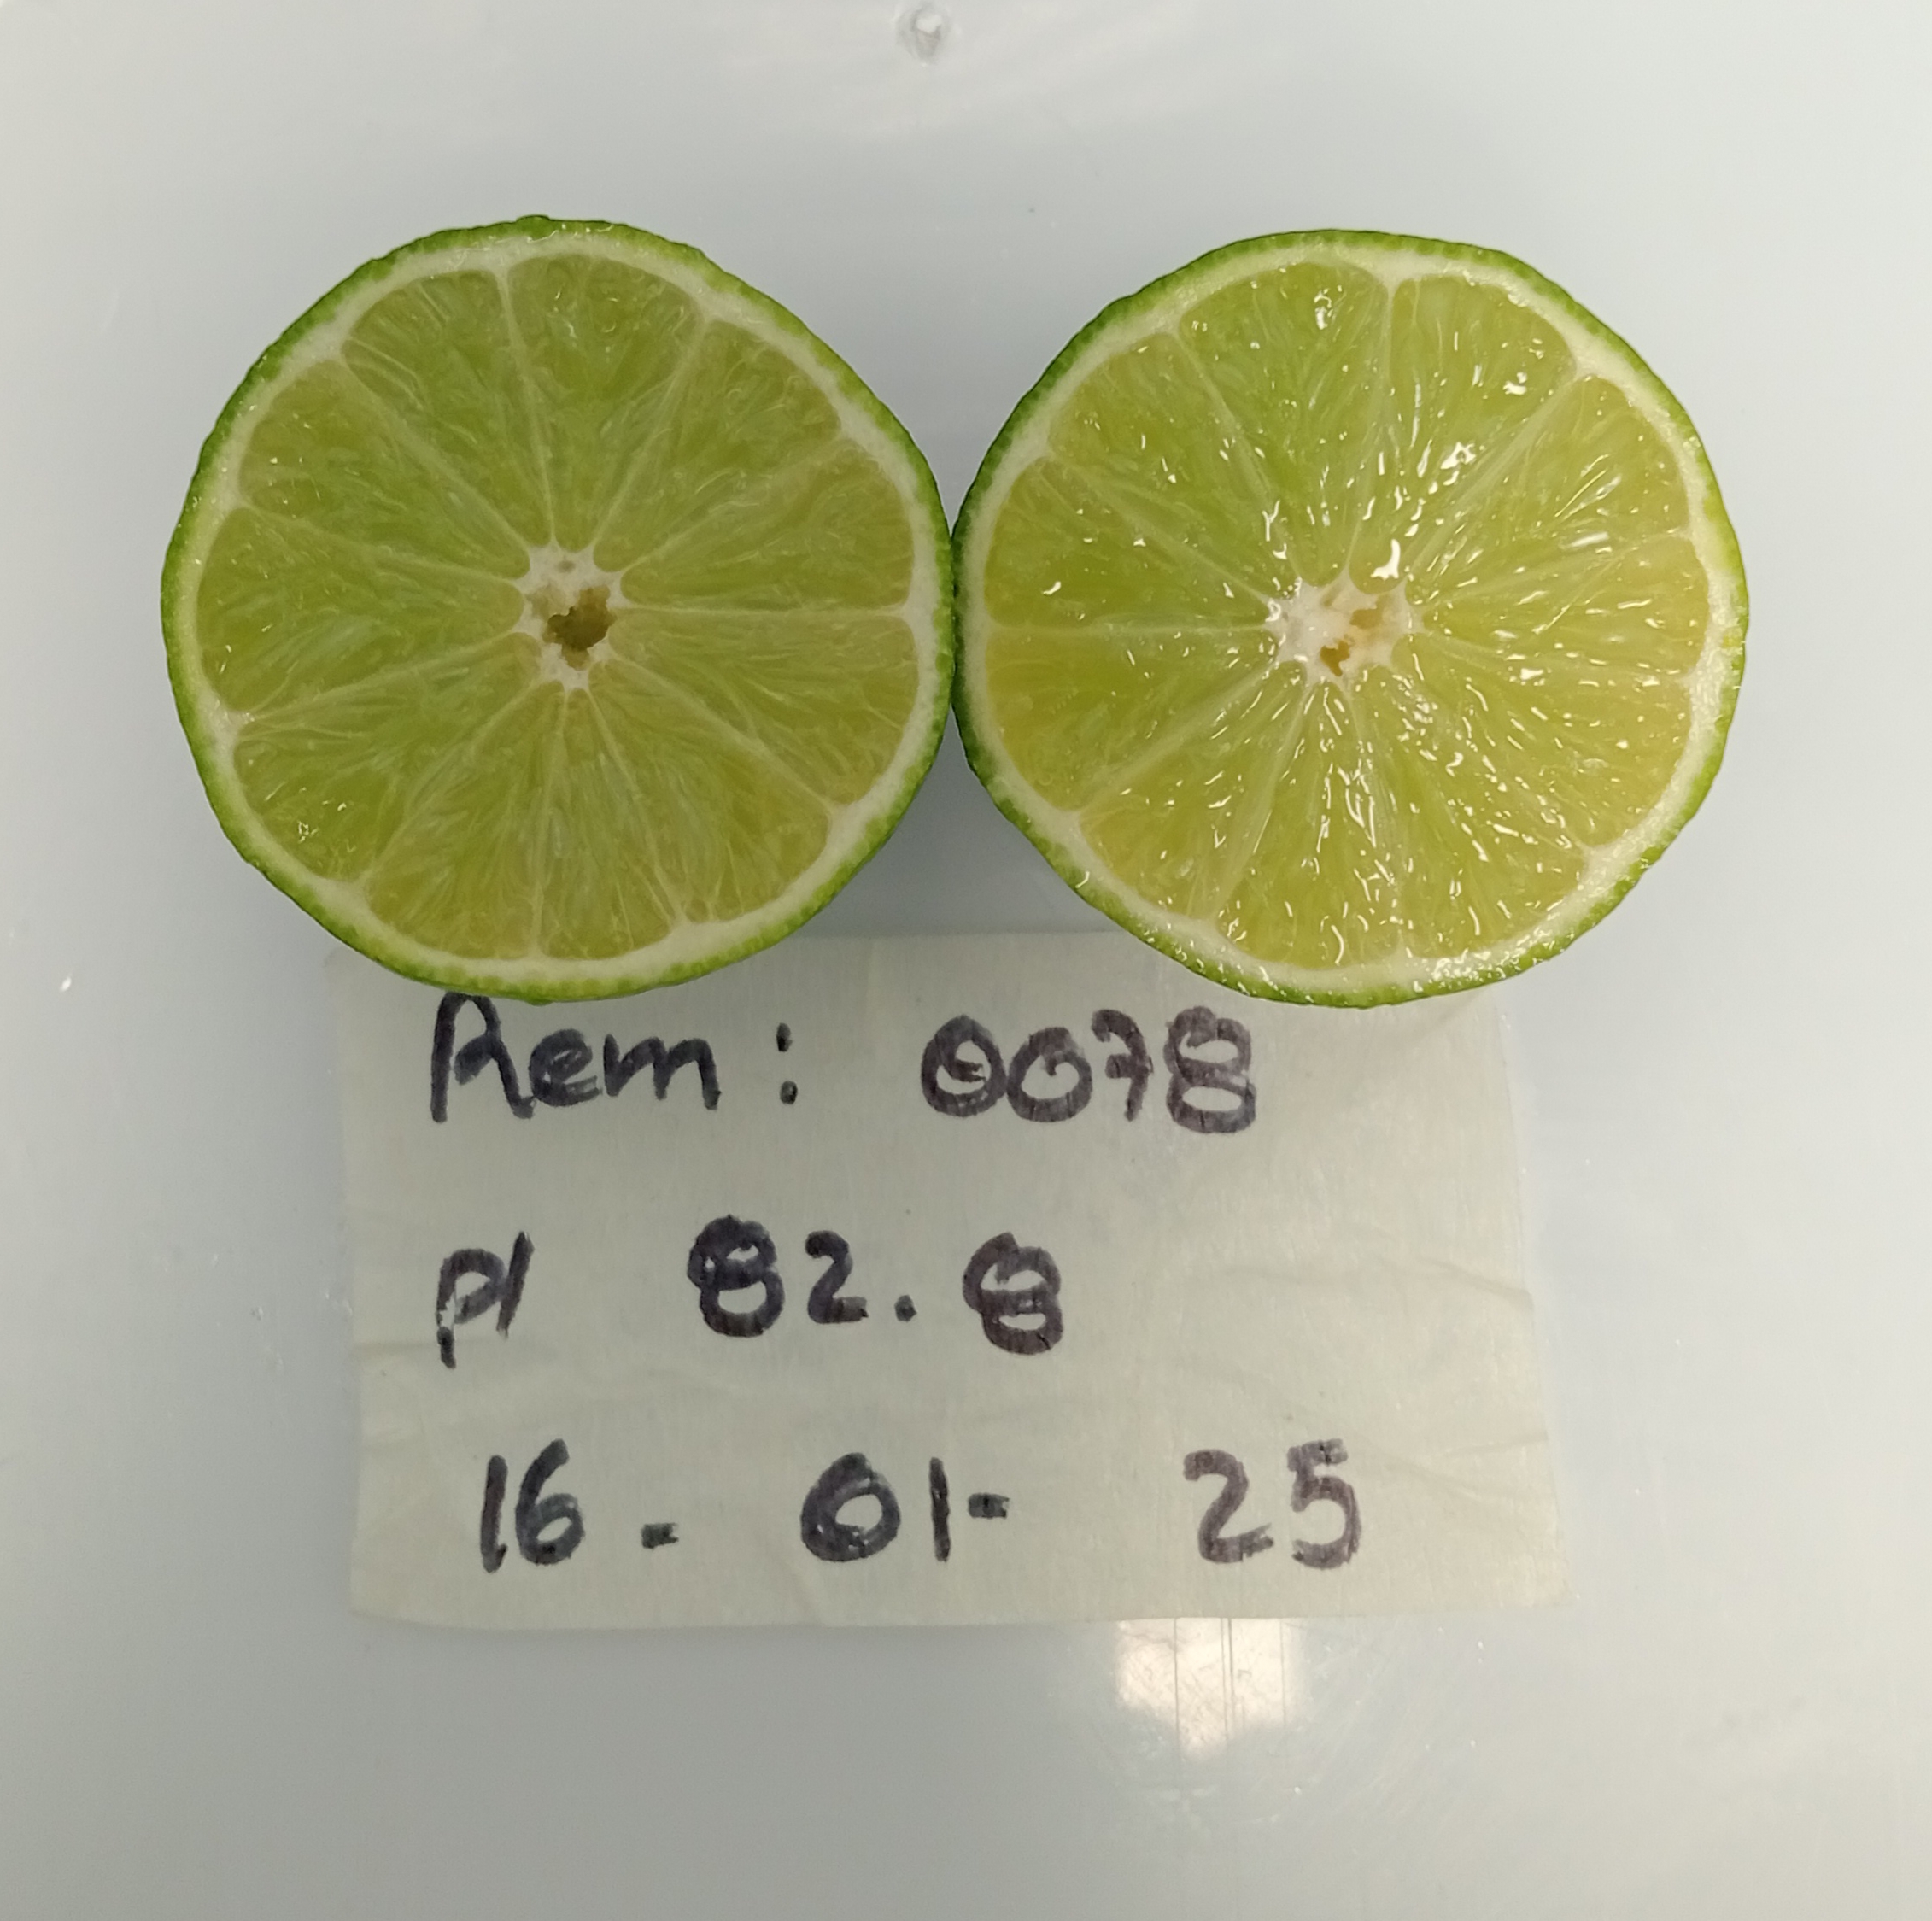 Rem: 0078
pl 82.8
16-01-25